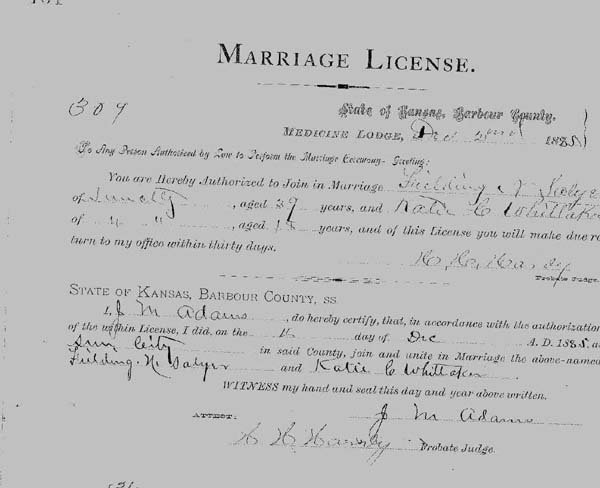 MARRIAGE LICENSE.
309
State of Kansas, Barbour County.
MEDICINE LODGE, Dec 2nd 1885
To Any Person Authorized by Law to Perform the Marriage Ceremony— Greeting:
You are Hereby Authorized to Join in Marriage Fielding N
of Sun City, aged 29 years, and Katie C Whittaker
of " ", aged 18 years, and of this License you will make due re
turn to my office within thirty days.
Probate Judge.
STATE OF KANSAS, BARBOUR COUNTY, SS
I, J M Adams, do hereby certify, that, in accordance with the authorization
of the within License, I did, on the day of Dec A. D. 1885, a
Sun City in said County, join and unite in Marriage the above-named
Fielding N. and Katie C Whittaker
WITNESS my hand and seal this day and year above written.
J M Adams
ATTEST:
Probate Judge.